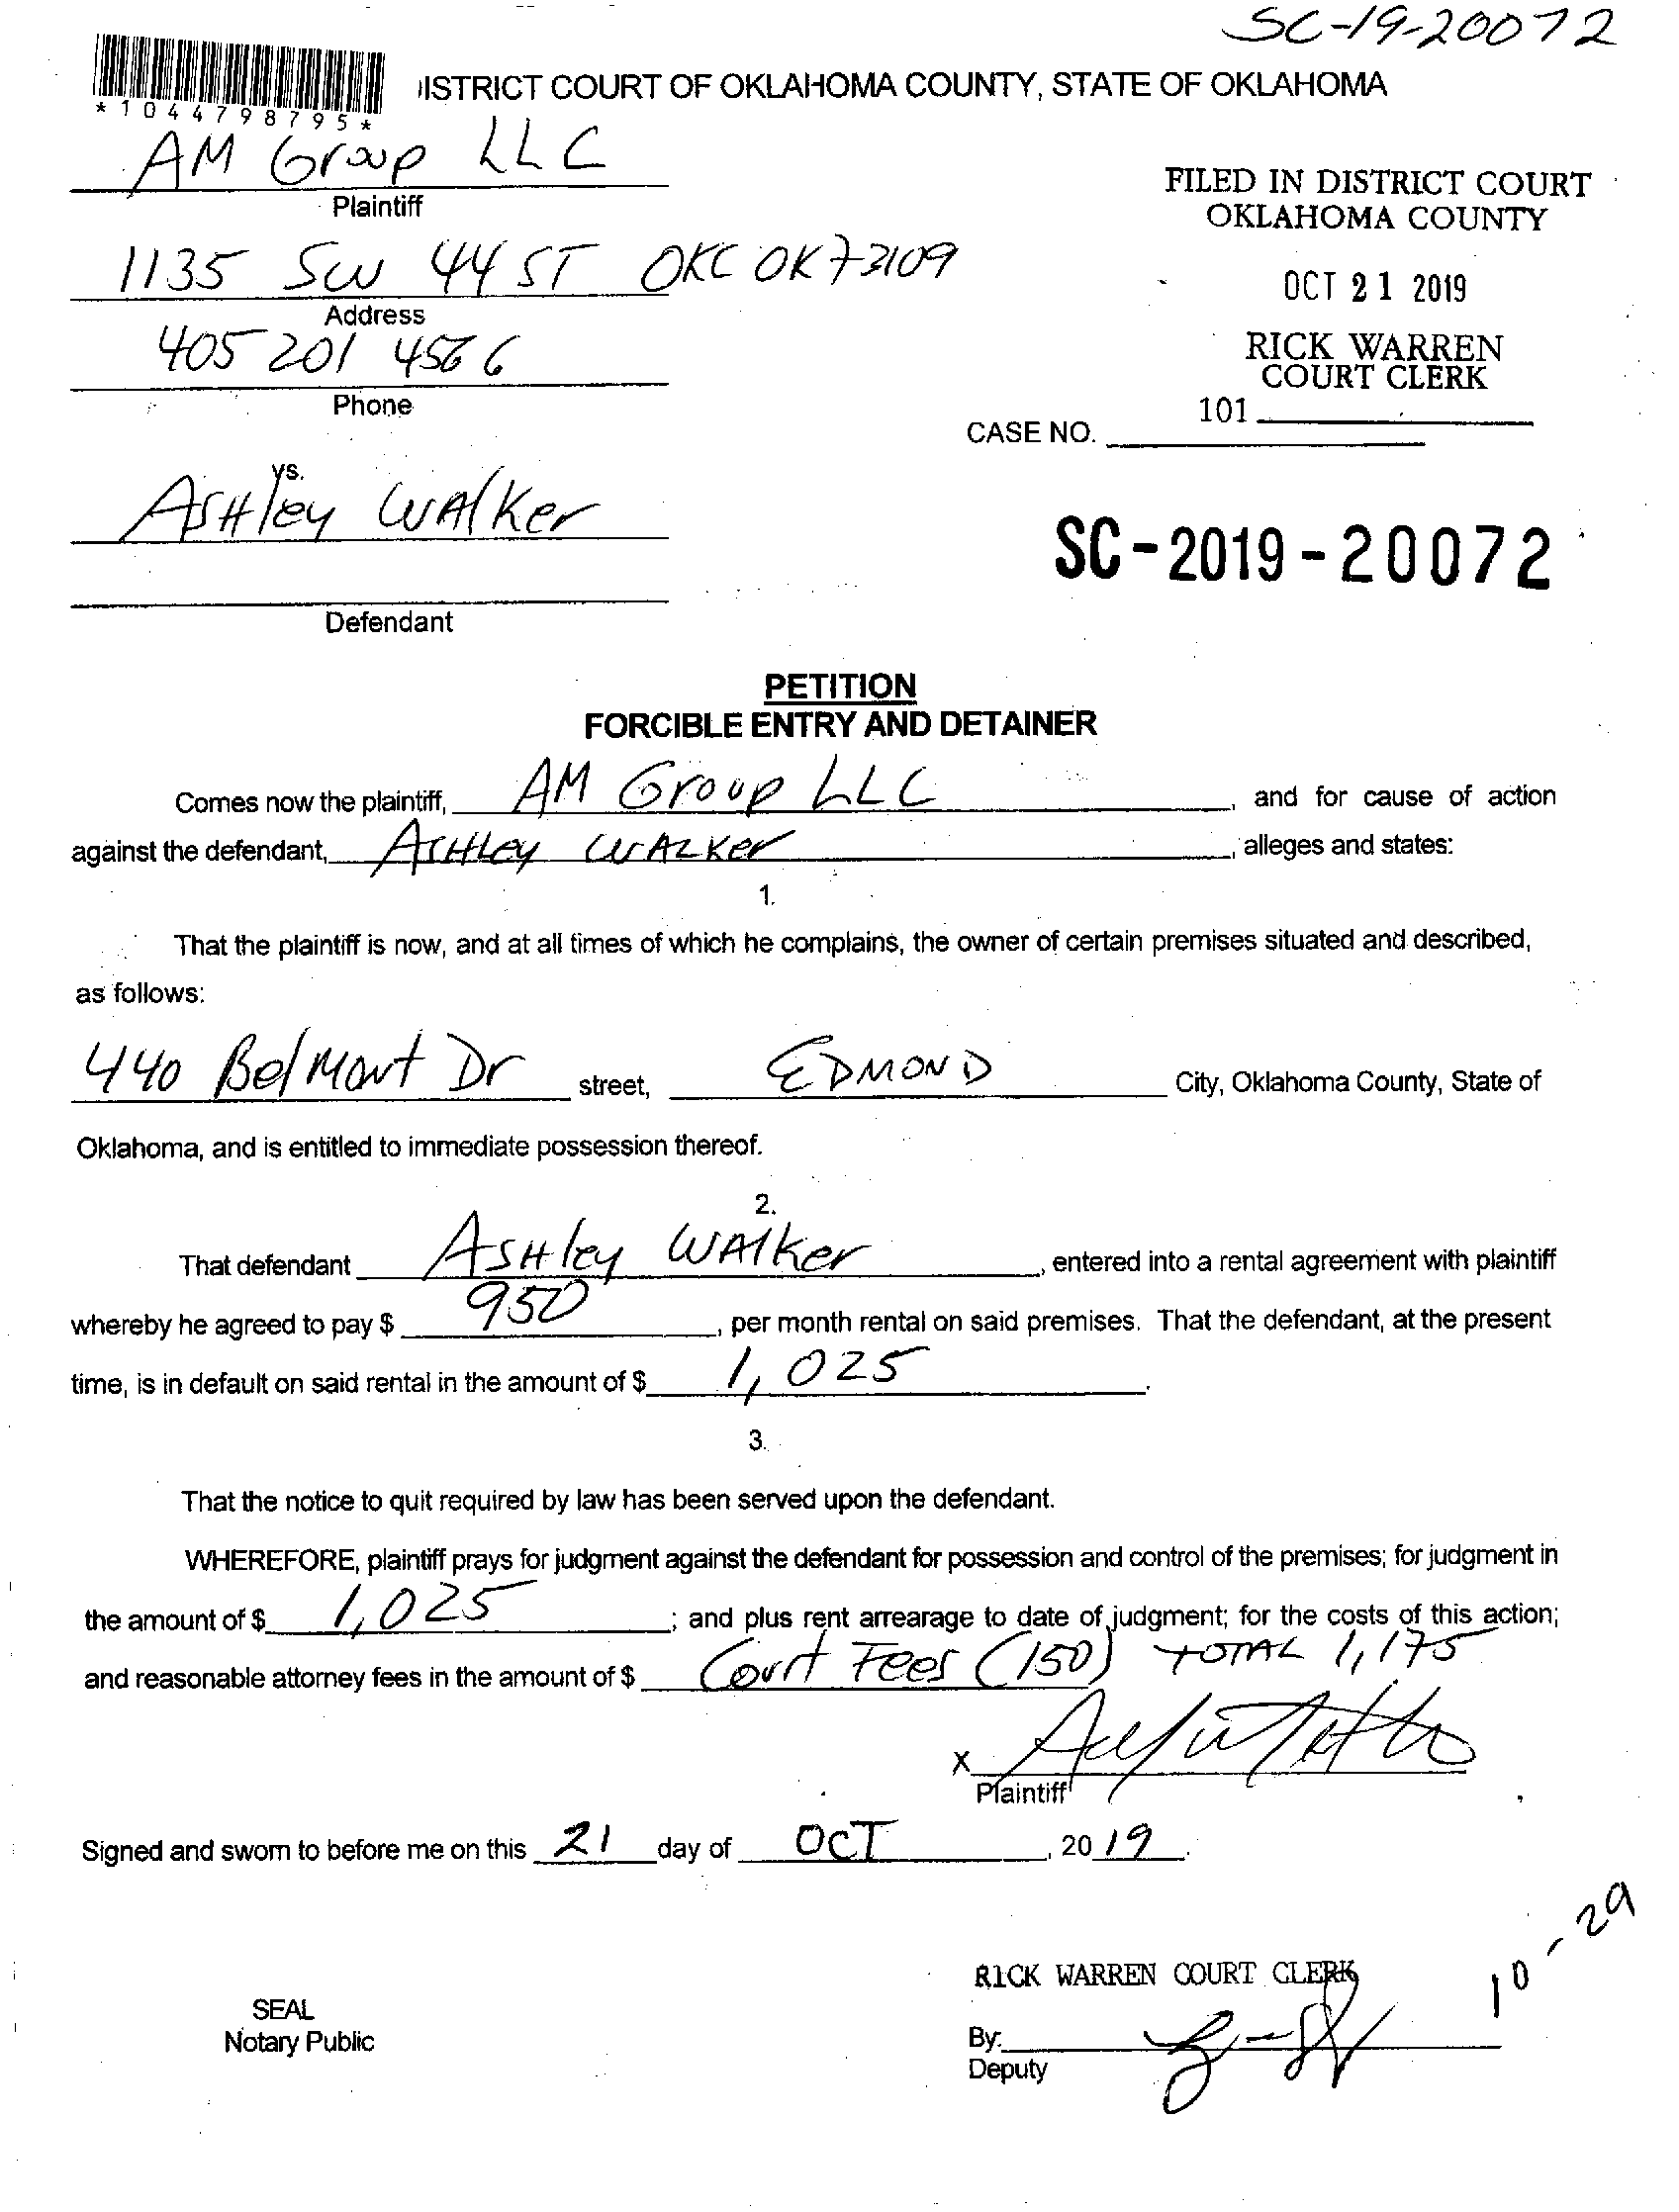 SC-19-20072
ISTRICT COURT OF OKLAHOMA COUNTY, STATE OF OKLAHOMA
*1044798795*
AM Group LLC
Plaintiff
FILED IN DISTRICT COURT
OKLAHOMA COUNTY
1135 SW 44 ST OKC OK 73109
Address
OCT 21 2019
405 201 4566
Phone
RICK WARREN
COURT CLERK
101
CASE NO.
vs.
ASHley WAlker
SC-2019-20072
Defendant
PETITION
FORCIBLE ENTRY AND DETAINER
Comes now the plaintiff, AM Group LLC, and for cause of action
against the defendant, ASHLey WALKer, alleges and states:
1.
That the plaintiff is now, and at all times of which he complains, the owner of certain premises situated and described,
as follows:
440 Belmont Dr street, EDMOND City, Oklahoma County, State of
Oklahoma, and is entitled to immediate possession thereof.
2.
That defendant ASHley WAlker, entered into a rental agreement with plaintiff
whereby he agreed to pay $ 950, per month rental on said premises. That the defendant, at the present
time, is in default on said rental in the amount of $ 1,025.
3.
That the notice to quit required by law has been served upon the defendant.
WHEREFORE, plaintiff prays for judgment against the defendant for possession and control of the premises; for judgment in
the amount of $ 1,025; and plus rent arrearage to date of judgment; for the costs of this action;
and reasonable attorney fees in the amount of $ Court Fees (150) TOTAL 1,175
X
Plaintiff
Signed and sworn to before me on this 21 day of OCT, 2019.
10-29
RICK WARREN COURT CLERK
SEAL
Notary Public
By:
Deputy